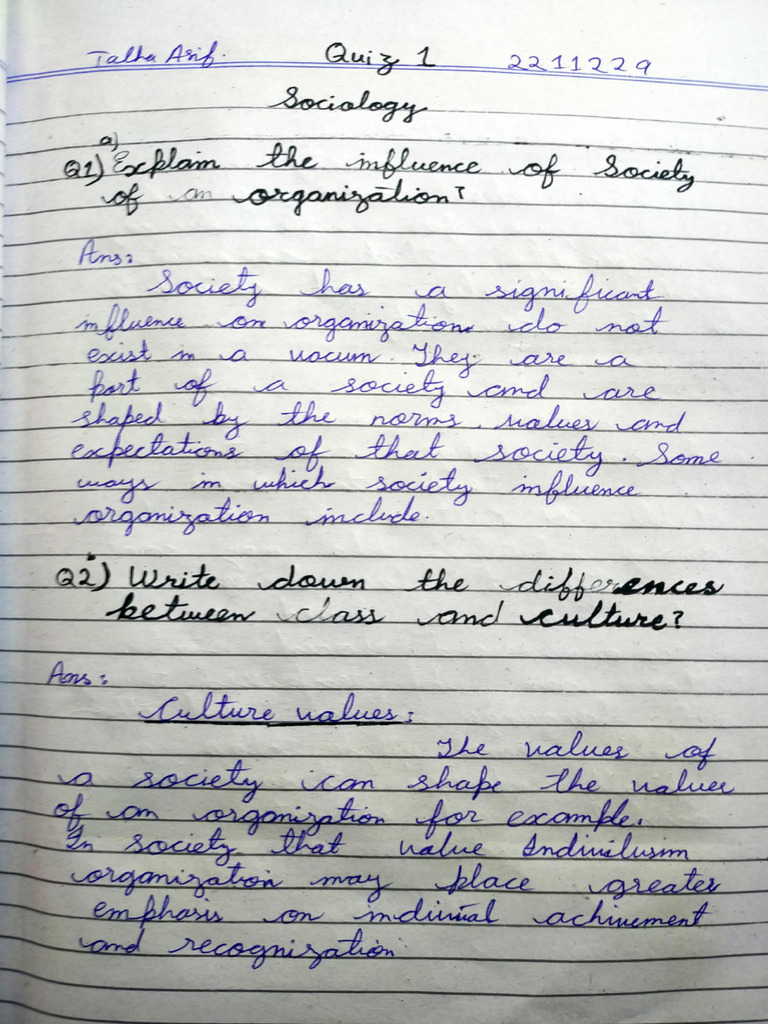 Talha Asif. Quiz 1 2211229
Sociology
a)
Q1) Explain the influence of Society
of an organization?
Ans:
Society has a significant
influence on organization. do not
exist in a vacum. They are a
part of a society and are
shaped by the norms, values and
expectations of that society. Some
ways in which society influence
organization include.
Q2) Write down the differences
between class and culture?
Ans:
Culture values:
The values of
a society can shape the values
of an organization for example.
In society that value
organization may place greater
emphasis on achivement
and recognization